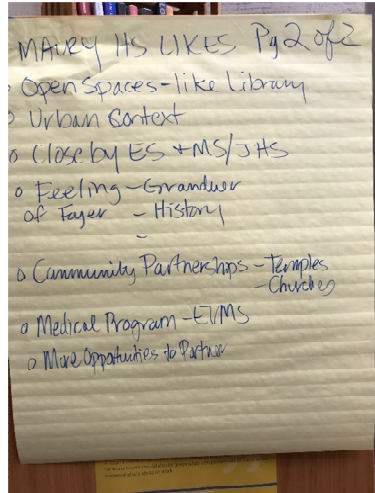 MAURY HS LIKES Pg 2 of 2
o Open Spaces - like Library
o Urban Context
o Close by ES + MS/JHS
o Feeling - Granduer
of Foyer - History
-
o Community Partnerships - Temples
- Churches
o Medical Program - EVMS
o More Opportunities to Partner